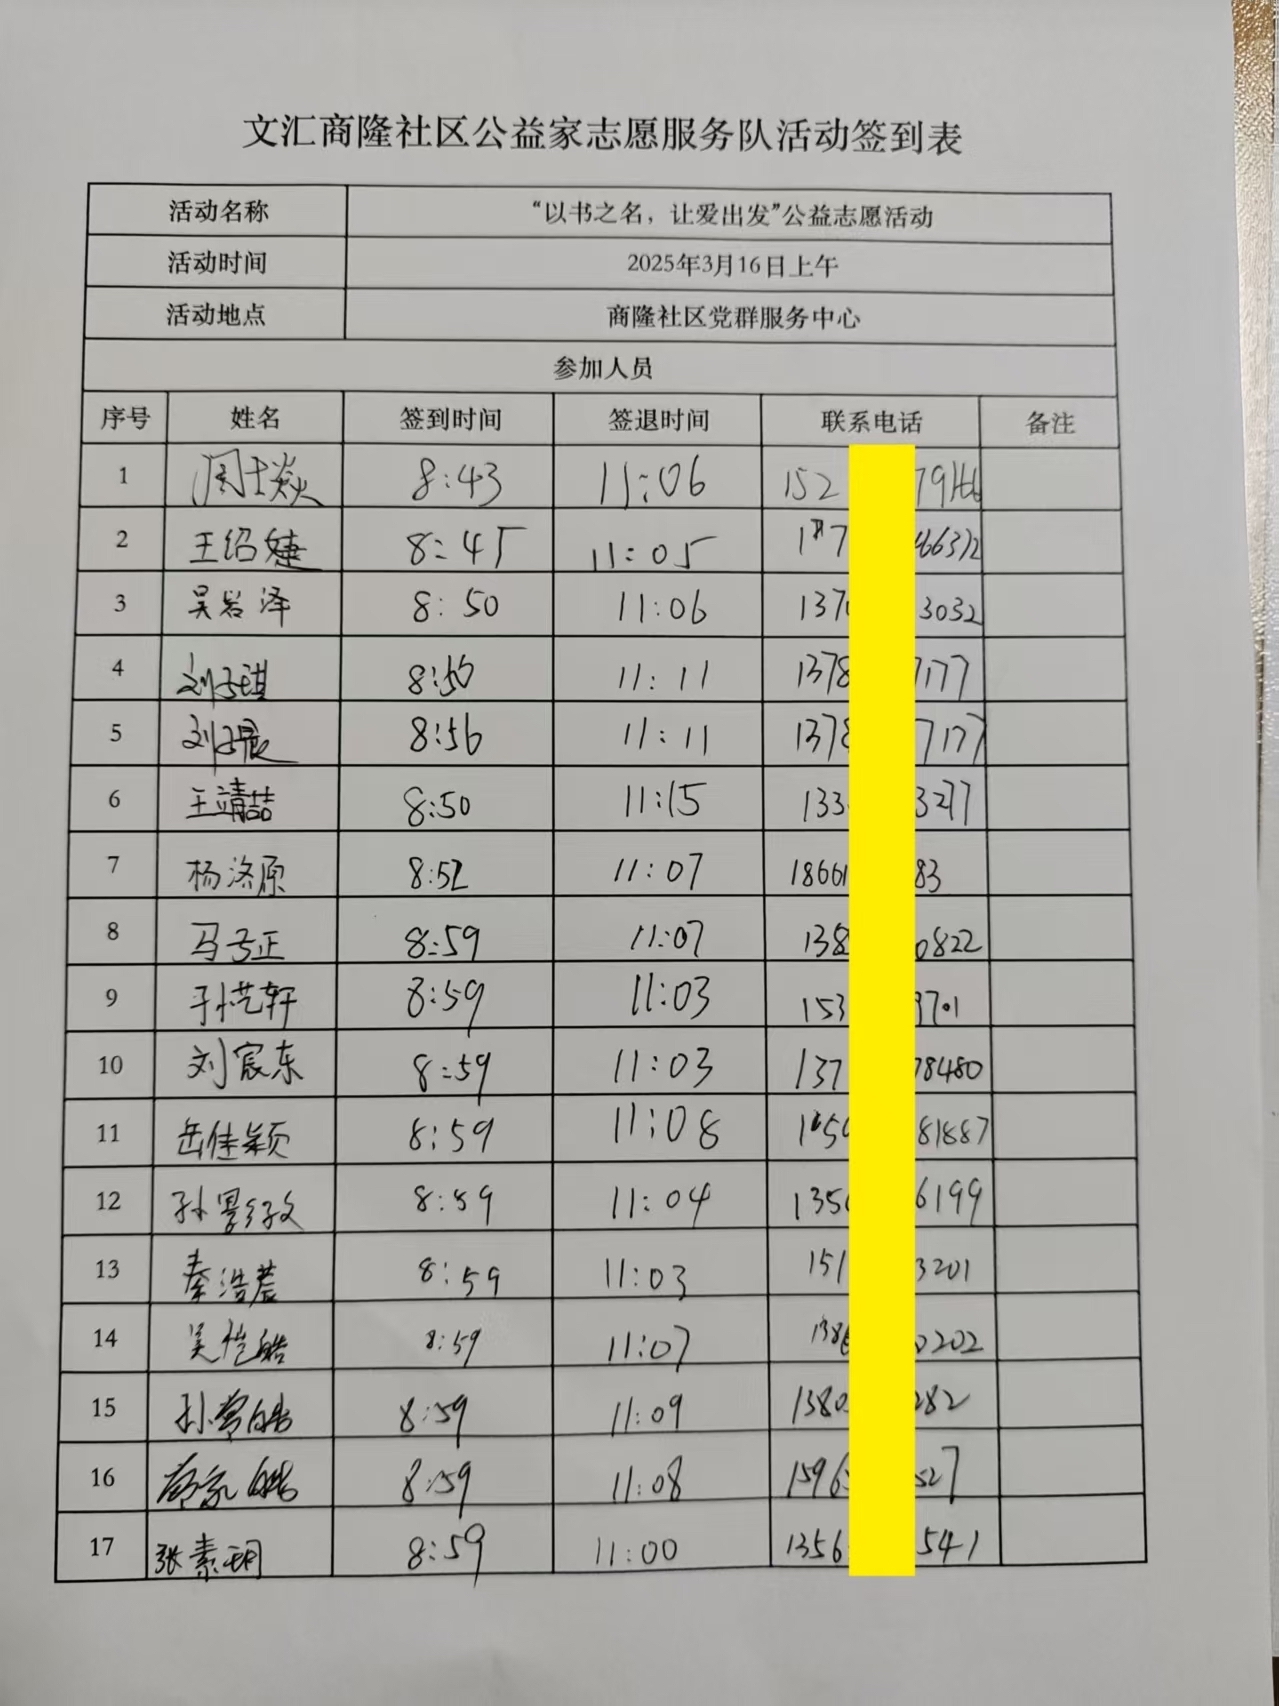 文汇商隆社区公益家志愿服务队活动签到表
活动名称 “以书之名，让爱出发”公益志愿活动
活动时间 2025年3月16日上午
活动地点 商隆社区党群服务中心
参加人员
序号 姓名 签到时间 签退时间 联系电话 备注
1 周士焱 8:43 11:06 152 79166
2 王绍婕 8:45 11:05 66372
3 吴岩泽 8:50 11:06 137 3032
4 刘子琪 8:50 11:11 1378 7177
5 刘子晨 8:56 11:11 1378 7177
6 王靖喆 8:50 11:15 133 3277
7 杨洛原 8:52 11:07 18661 83
8 马子正 8:59 11:07 138 0822
9 于忆轩 8:59 11:03 153 9701
10 刘宸东 8:59 11:03 137 78480
11 岳佳颖 8:59 11:08 81887
12 孙 8:59 11:04 135 6199
13 秦浩 8:59 11:03 151 3201
14 吴恺皓 8:59 11:07 138 0202
15 孙 皓 8:59 11:09 1380 282
16 皓 8:59 11:08 1596 527
17 张素玥 8:59 11:00 1356 541